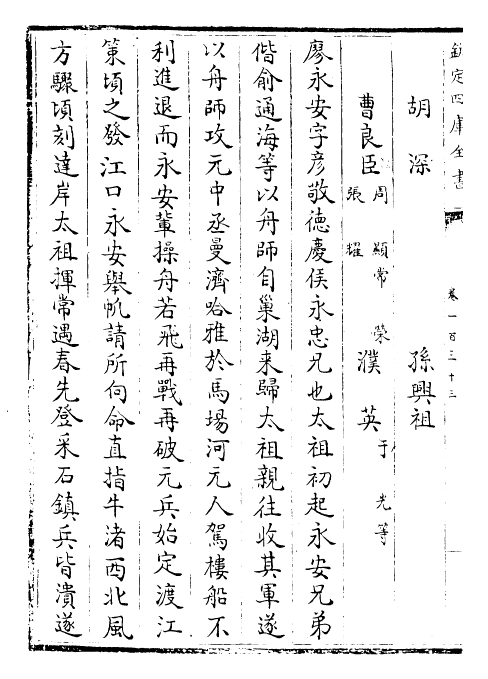 欽定四庫全書
卷一百三十三
胡深　孫興祖
曹良臣 周顯 常榮 張耀　濮英 于光等
廖永安字彦敬徳慶侯永忠兄也太祖初起永安兄弟
偕俞通海等以舟師自巢湖来歸太祖親往收其軍遂
以舟師攻元中丞曼濟哈雅於馬塲河元人駕樓船不
利進退而永安軰操舟若飛再戰再破元兵始定渡江
策頃之發江口永安舉帆請所向命直指牛渚西北風
方驟頃刻達岸太祖揮常遇春先登采石鎮兵皆潰遂